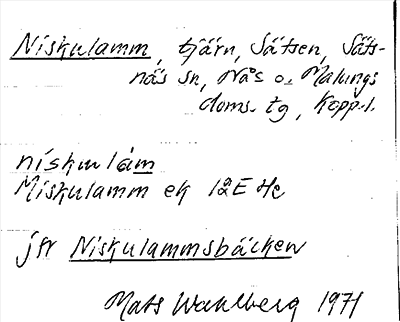 Niskulamm, tjärn, Sätsen, Säts-
näs sn, Nås o. Malungs
doms. tg, Kopp. l.
niskulám
Niskulamm ek 12E He
jfr Niskulammsbäcken
Mats Wahlberg 1971